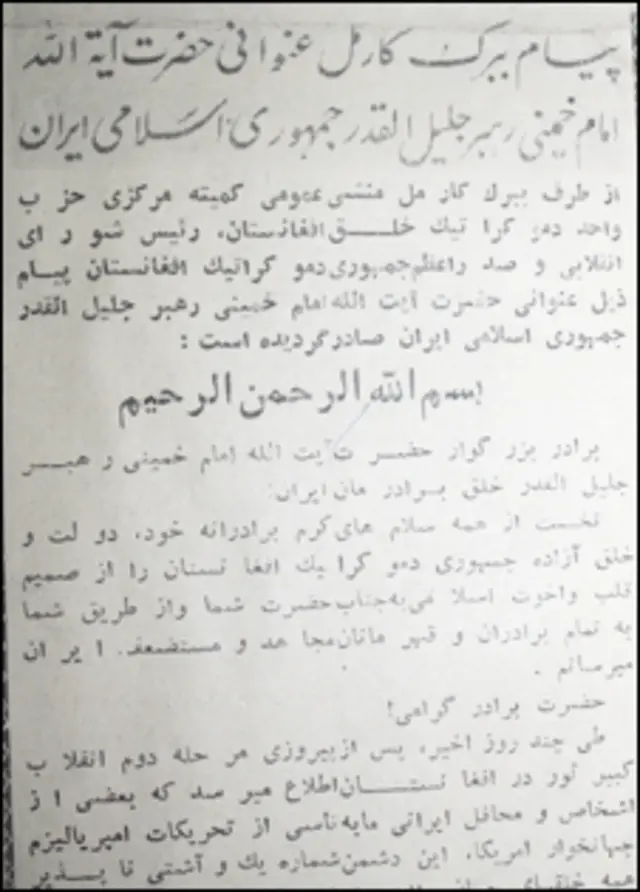 پیام ببرک کارمل عنوانی حضرت آیة الله
امام خمینی رهبر جلیل القدر جمهوری اسلامی ایران
از طرف ببرک کار مل منشی عمومی کمیته مرکزی حز ب
واحد دمو کرا تیک خلــق افغانستان، رئیس شو ر ای
انقلابی و صد راعظم جمهوری دمو کراتیک افغانستان پیام
ذیل عنوانی حضرت آیت الله امام خمینی رهبر جلیل القدر
جمهوری اسلامی ایران صادر گردیده است :
بسم الله الرحمن الرحیم
برادر بزر گوار حضر ت آیت الله امام خمینی ر هبــر
جلیل القدر خلق بــرادر مان ایران:
نخست از همه سلام های گرم برادرانه خود، دو لت و
خلق آزاده جمهوری دمو کرا تیک افغا نستان را از صمیم
قلب واخوت اسلا می به جناب حضرت شما واز طریق شما
به تمام برادران و قهر مانان مجا هد و مستضعف ا یر ان
میرسانم .
حضرت برادر گرامی!
طی چند روز اخیر، پس از پیروزی مر حله دوم انقلا ب
کبیر ثور در افغا نستــان اطلاع میر سد که بعضی ا ز
اشخاص و محافل ایرانی مایه تاسی از تحریکات امپریالیزم
جهانخوار امریکا، این دشمن شماره یک و آشتی نا پــذیر
همه خلقهای